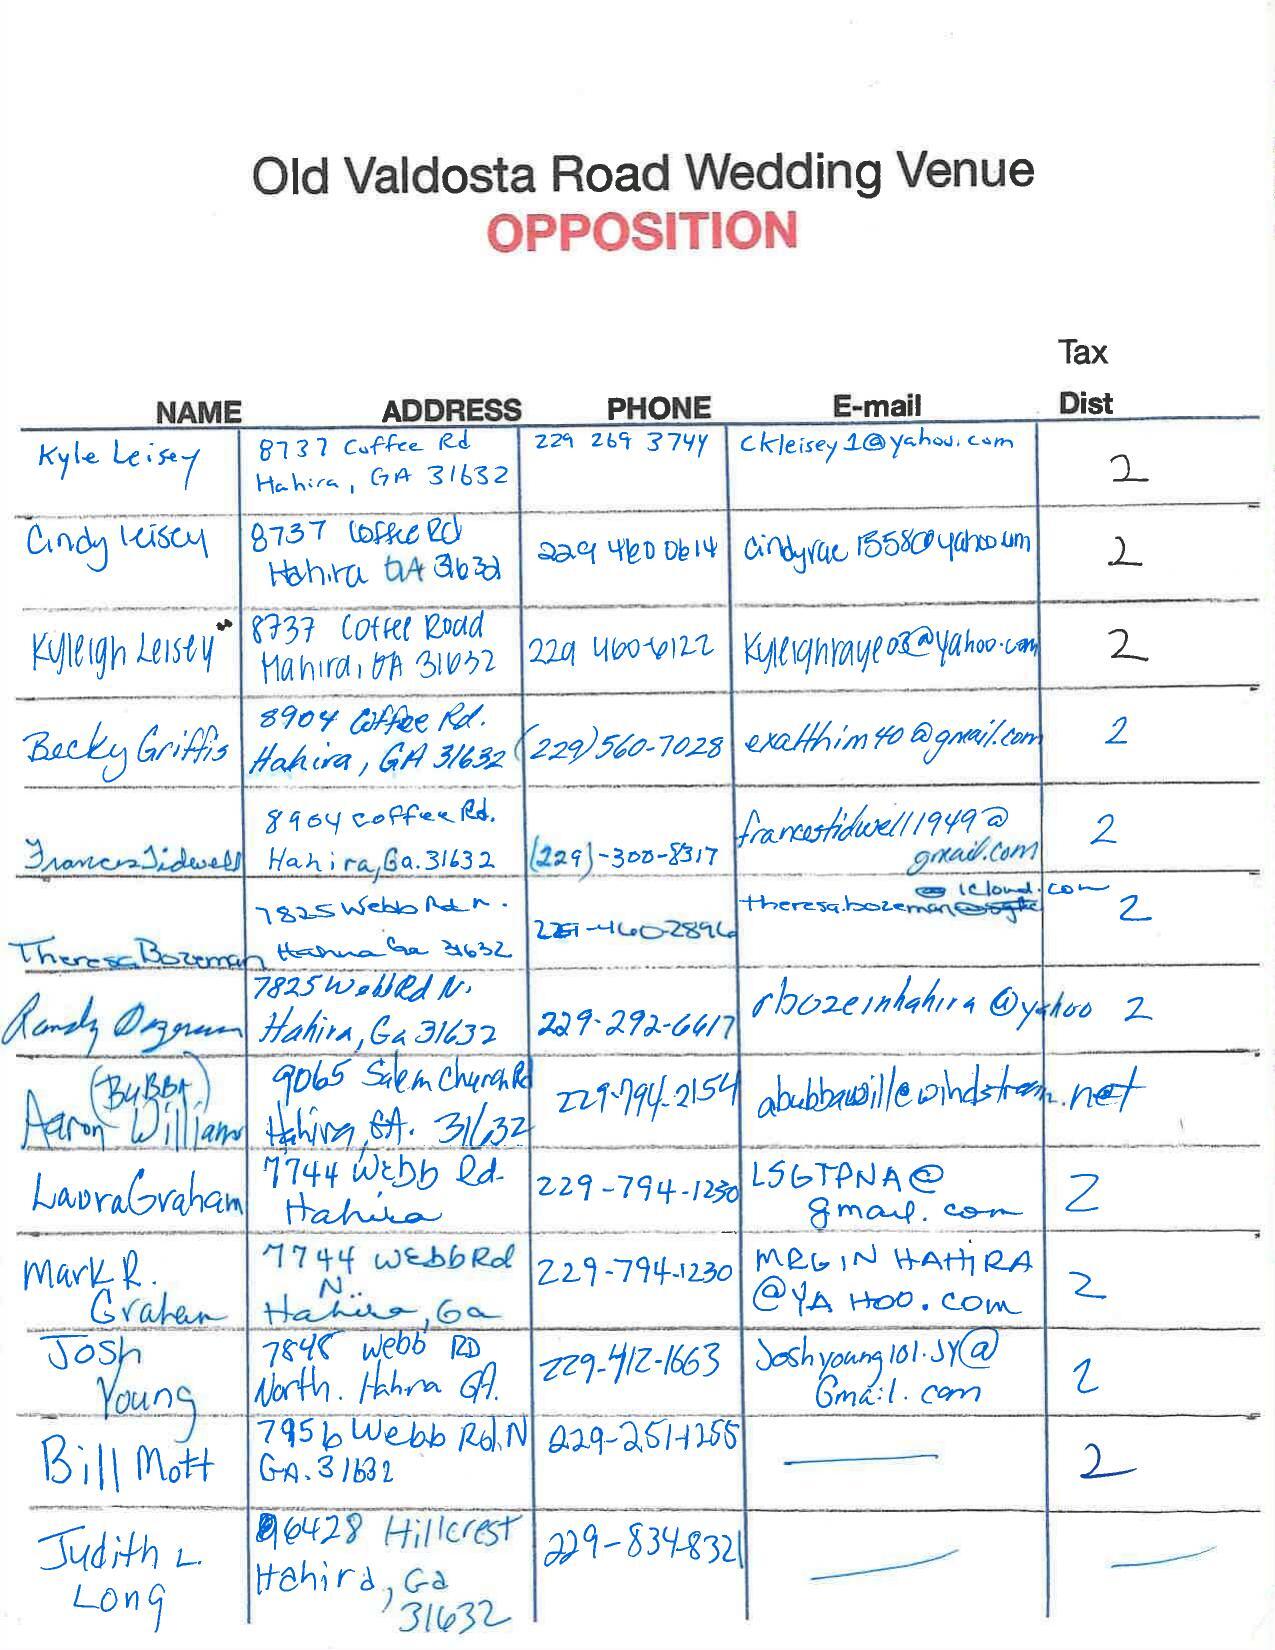 Old Valdosta Road Wedding Venue
OPPOSITION
Tax
NAME ADDRESS PHONE E-mail Dist
Kyle Leisey 8737 Coffee Rd 229 269 3744 ckleisey1@yahoo.com 2
Hahira, GA 31632
Cindy Leisey 8737 Coffee Rd 229 460 0614 cindyrae 1558@yahoo.com 2
Hahira GA 31632
Kyleigh Leisey 8737 Coffee Road 229 460-6122 Kyleighraye03@yahoo.com 2
Hahira, GA 31632
Becky Griffis 8904 Coffee Rd. (229)560-7028 exalthim40@gmail.com 2
Hahira, GA 31632
Frances Tidwell 8904 Coffee Rd. (229)-300-8317 francestidwell1949@ 2
Hahira, Ga. 31632 gmail.com
icloud.com
Theresa Bozeman 7825 Webb Rd n. 229-460-2896 theresa.bozeman@ 2
Hahira Ga 31632
Randy Bozeman 7825 Webb Rd N. 229-292-6617 rbozeinhahira@yahoo 2
Hahira, Ga 31632
(BUBBA) 9065 Salem Church Rd 229-794-2154 abubbawill@windstream.net
Aaron Williams Hahira, GA. 31632
Laura Graham 7744 Webb Rd. 229-794-1230 LSGTPNA@ 2
Hahira gmail.com
Mark R. 7744 Webb Rd 229-794-1230 MRGINHAHIRA 2
Graham N. @YAHOO.COM
Hahira, Ga
Josh 7848 Webb RD 229-412-1663 Joshyoung101.JY@ 2
Young North. Hahira GA. Gmail.com
Bill Mott 7956 Webb Rd. N 229-251-1255 — 2
GA. 31632
Judith L. 6428 Hillcrest 229-834-8321 — —
Long Hahira, Ga
31632